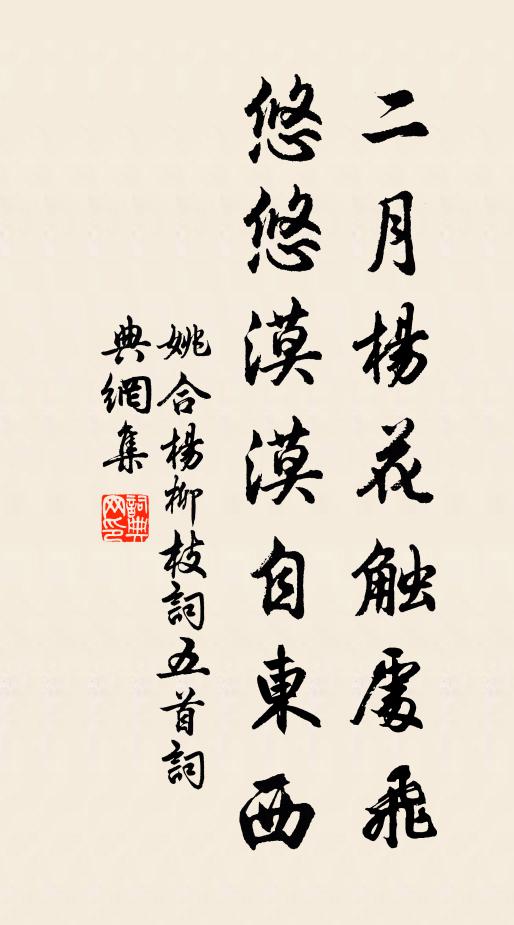 二月楊花触處飛
悠悠漠漠自東西
姚合楊柳枝詞五首詞
典網集
詞典網印